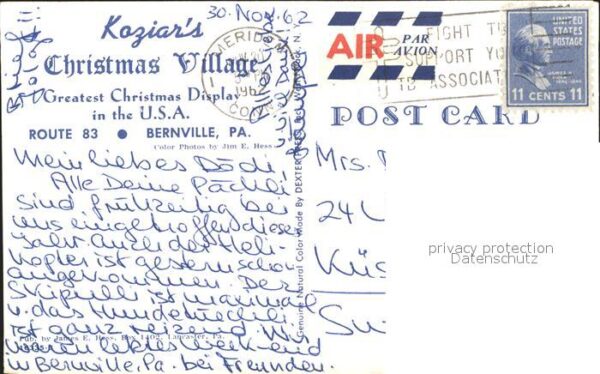 30. Nov. 62
Koziar's
Christmas Village
Greatest Christmas Display
in the U.S.A.
ROUTE 83 • BERNVILLE, PA.
Color Photos by Jim E. Hess
Mein liebes Dödi,
Alle Deine Päckli
sind frühzeitig bei
uns eingetroffen dieses
Jahr. Auch der Heli-
kopter ist gestern schon
angekommen. Der
Skipulli ist maximal
u. das Hundetüechli
ist ganz reizend. Wir
waren letztes Week-end
in Bernville, Pa. bei Freunden.
Pub. by James E. Hess, Box 1402, Lancaster, Pa.
Genuine Natural Color Made By DEXTER PRESS
MERIDEN
CONN
196
AIR PAR
AVION
FIGHT TB
SUPPORT YO
TB ASSOCIAT
UNITED
STATES POSTAGE
11 CENTS 11
POST CARD
Mrs.
24
Küs
privacy protection
Datenschutz